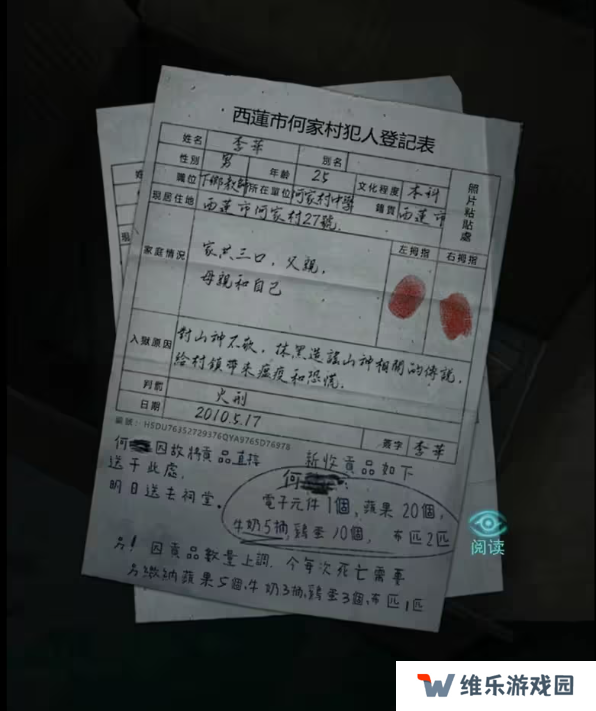 西蓮市何家村犯人登記表
姓名 李華 別名
性別 男 年齡 25 文化程度 本科
職位 下鄉教師 所在單位 何家村中學 籍貫 西蓮市
現居住地 西蓮市何家村27號
照片粘貼處
家庭情況 家共三口,父親, 左拇指 右拇指
母親和自己
入獄原因 對山神不敬,抹黑造謠山神相關的傳說,
給村鎮帶來瘟疫和恐慌.
判罰 火刑
日期 2010.5.17
編號:HSDU76352729376QYA9765D76978 簽字 李華
何 因故將貢品直接
送于此處,
明日送去祠堂。
新收貢品如下
何
電子元件1個,蘋果20個,
牛奶5抽,鷄蛋10個, 布匹2匹
另!因貢品數量上調.今每次死亡需要
另繳納蘋果5個,牛奶3抽,鷄蛋3個,布匹1匹
阅读
维乐游戏园